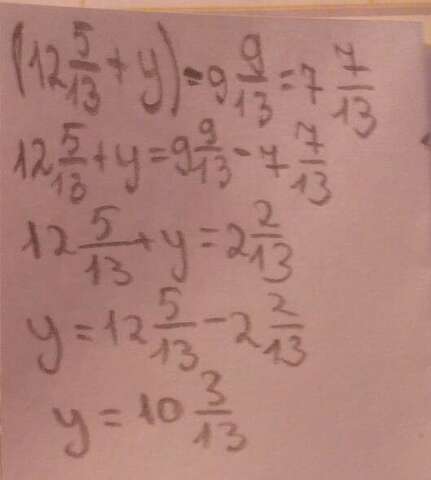 (12 5/13 + y) - 9 9/13 = 7 7/13
12 5/13 + y = 9 9/13 - 7 7/13
12 5/13 + y = 2 2/13
y = 12 5/13 - 2 2/13
y = 10 3/13